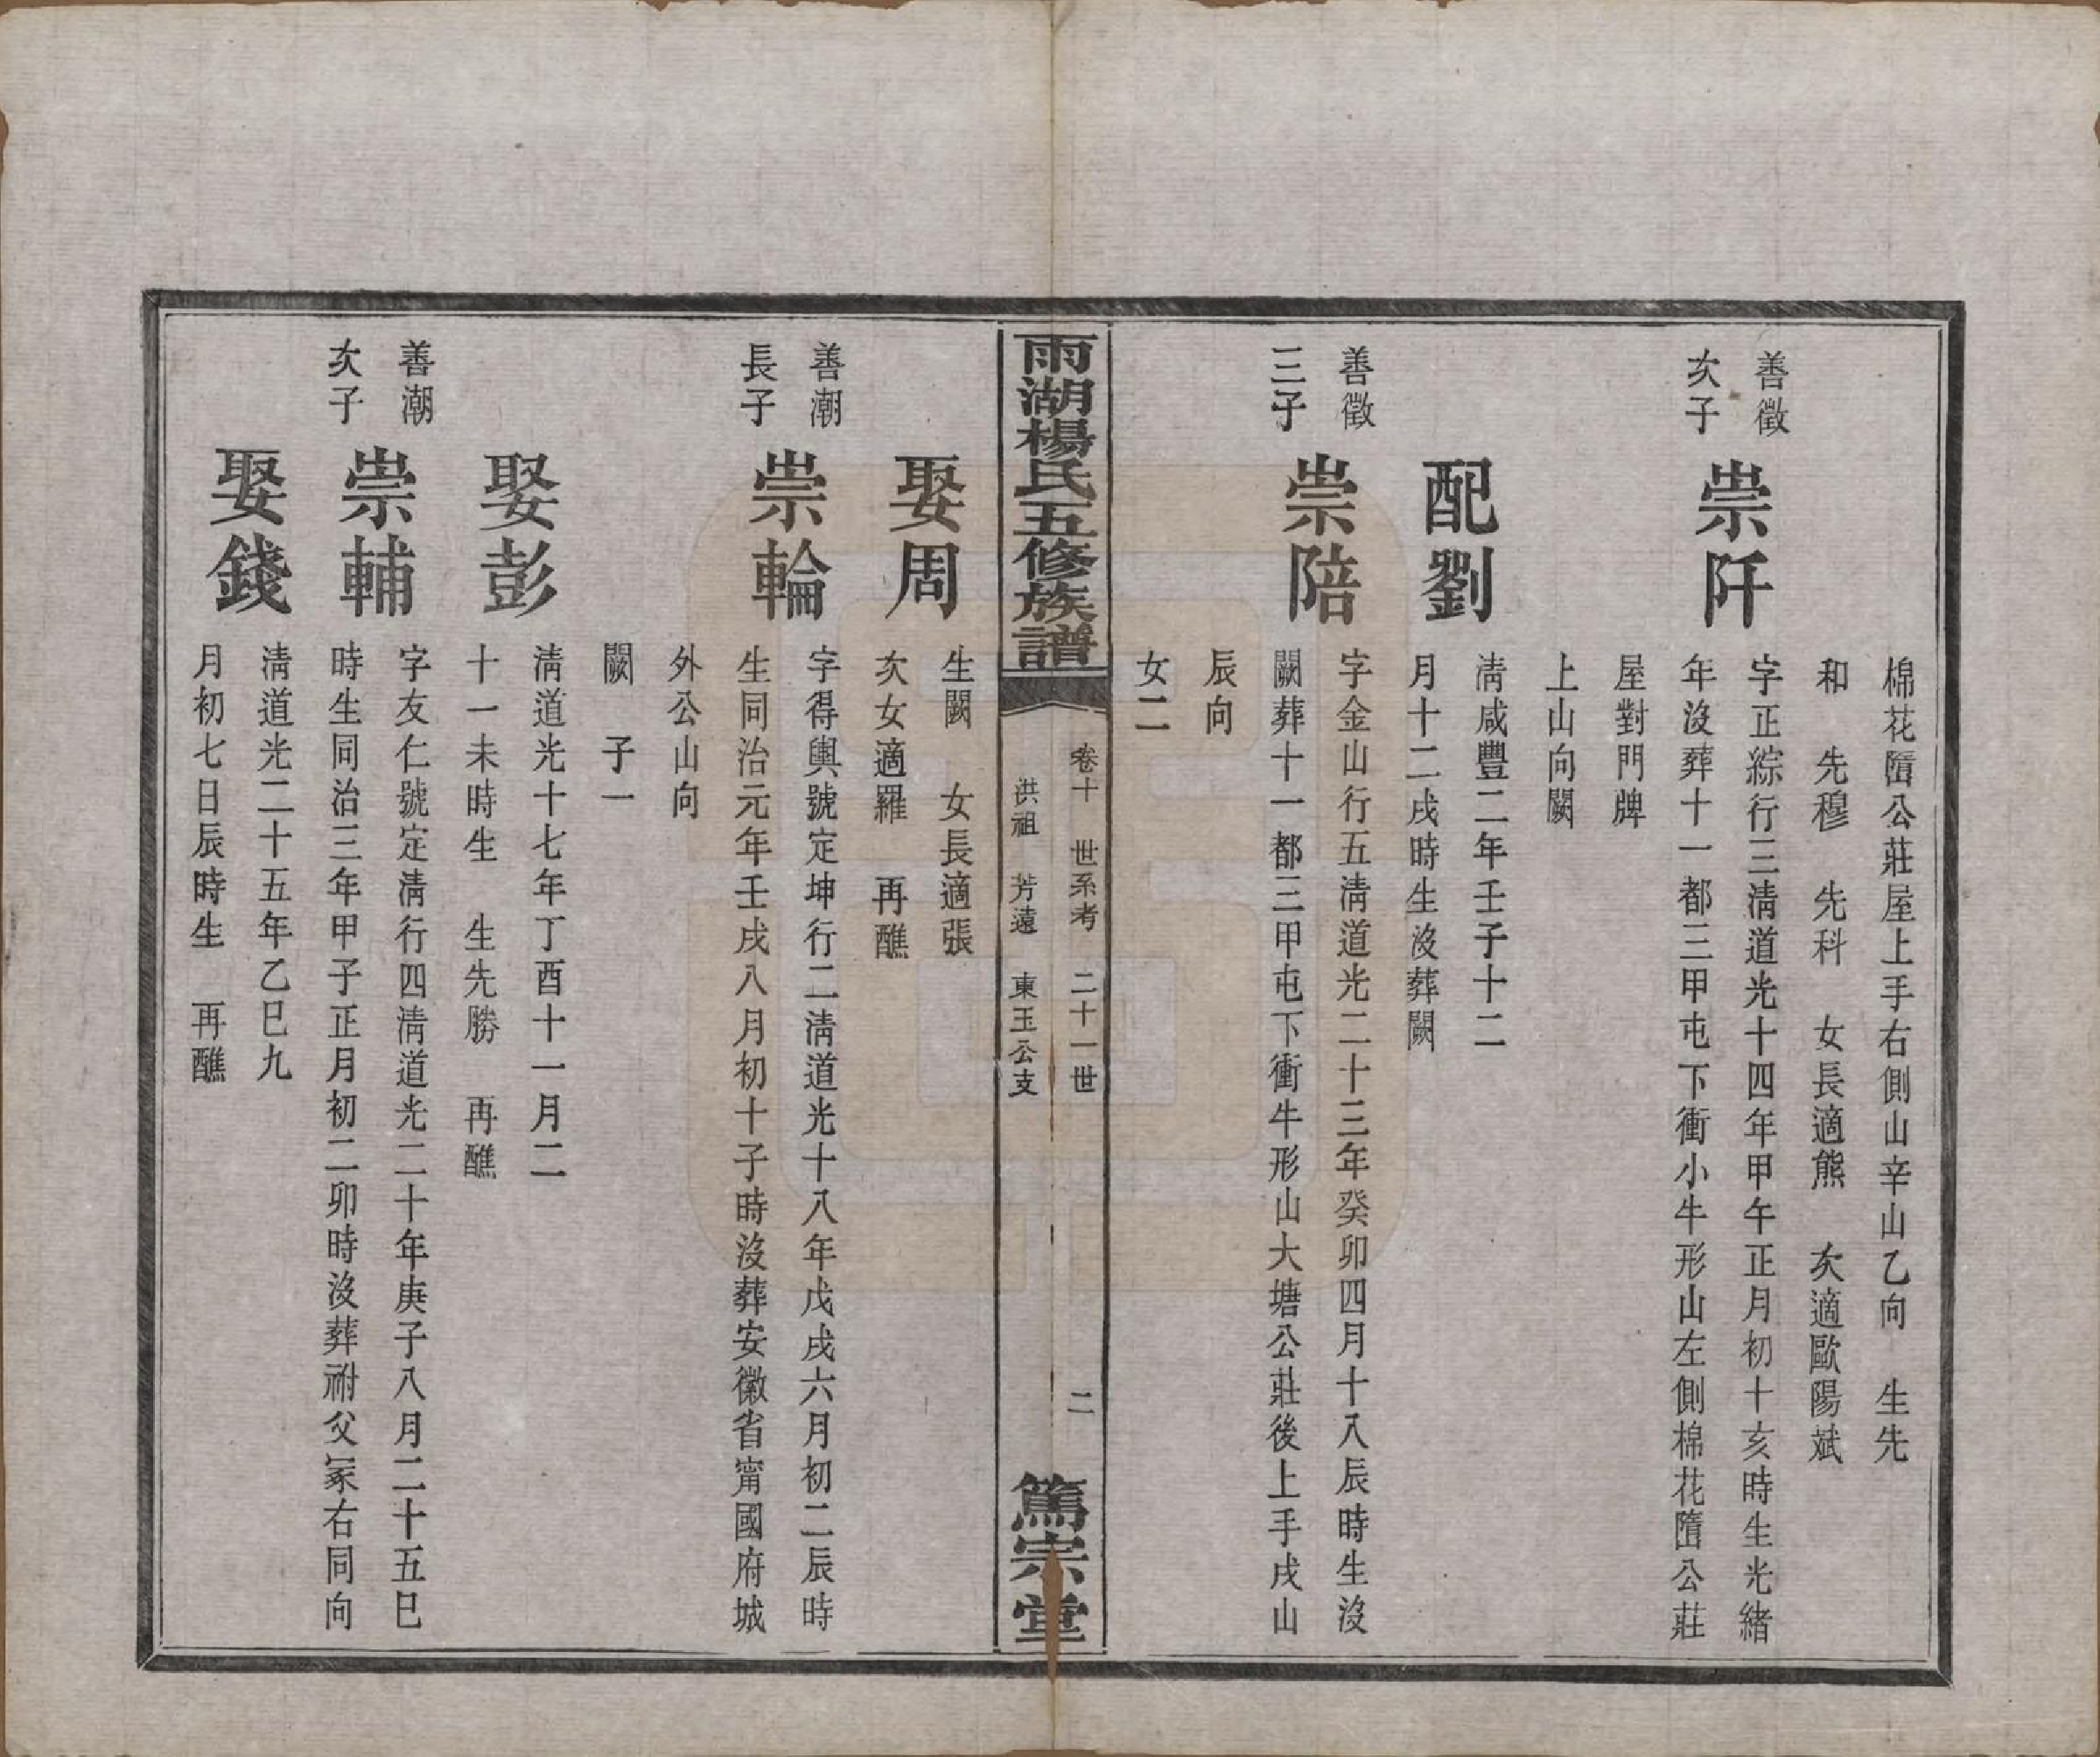 棉花𡐦公莊屋上手右側山辛山乙向　生先
和　先穆　先科　女長適熊　次適歐陽斌
善徵
次子
崇阡
字正綜行三淸道光十四年甲午正月初十亥時生光緒
年沒葬十一都三甲屯下衝小牛形山左側棉花𡐦公莊
屋對門牌
上山向闕
配劉
淸咸豐二年壬子十二
月十二戌時生沒葬闕
善徵
三子
崇陪
字金山行五淸道光二十三年癸卯四月十八辰時生沒
闕葬十一都三甲屯下衝牛形山大塘公莊後上手戌山
辰向
女二
雨湖楊氏五修族譜
卷十　世系考　二十一世
洪祖　芳遠　東玉公支
二
篤宗堂
娶周
生闕　女長適張
次女適羅　再醮
善潮
長子
崇輪
字得輿號定坤行二淸道光十八年戊戌六月初二辰時
生同治元年壬戌八月初十子時沒葬安徽省甯國府城
外公山向
闕　子一
娶彭
淸道光十七年丁酉十一月二
十一未時生　生先勝　再醮
善潮
次子
崇輔
字友仁號定淸行四淸道光二十年庚子八月二十五巳
時生同治三年甲子正月初二卯時沒葬祔父冢右同向
娶錢
淸道光二十五年乙巳九
月初七日辰時生　再醮